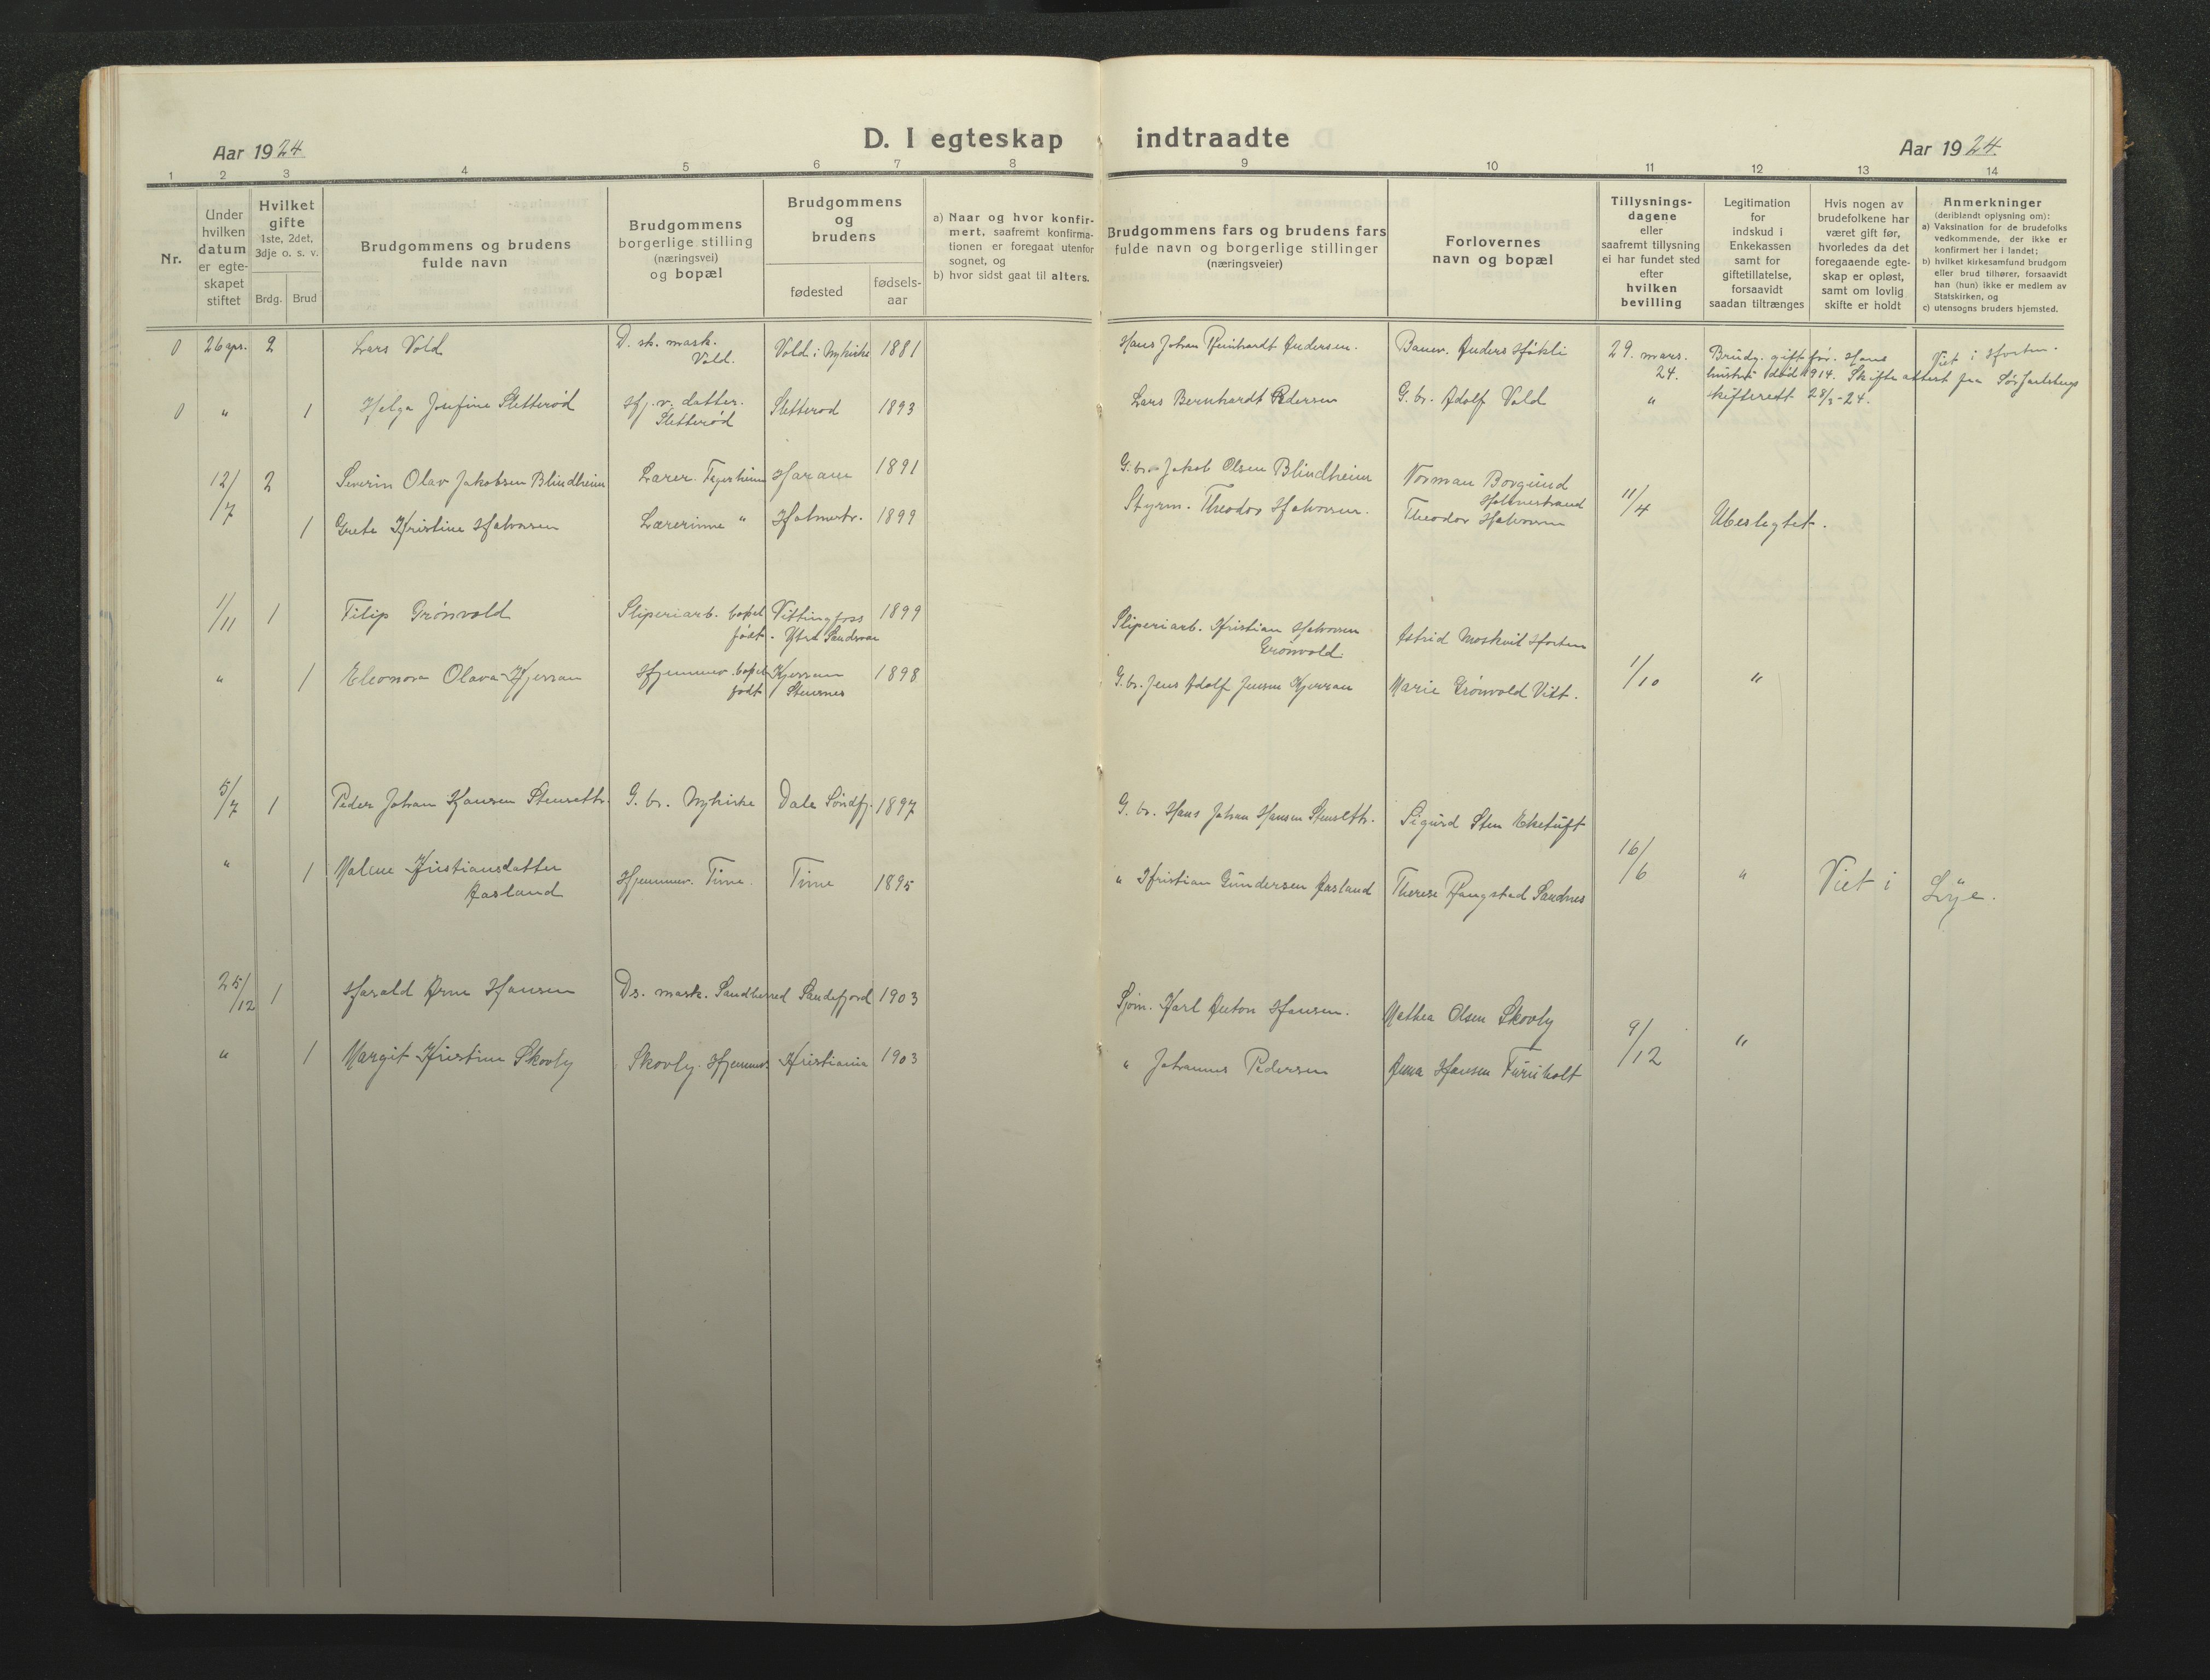 D. I egteskap indtraadte
Aar 1924
Aar 1924
1 2 3 4 5 6 7 8 9 10 11 12 13 14
Nr.
Under hvilken datum er egteskapet stiftet
Hvilket gifte 1ste, 2det, 3dje o. s. v.
Brdg. Brud
Brudgommens og brudens fulde navn
Brudgommens borgerlige stilling (næringsvei) og bopæl
Brudgommens og brudens
fødested
fødsels-aar
a) Naar og hvor konfirmert, saafremt konfirmationen er foregaat utenfor sognet, og
b) hvor sidst gaat til alters.
Brudgommens fars og brudens fars fulde navn og borgerlige stillinger (næringsveier)
Forlovernes navn og bopæl
Tillysningsdagene eller saafremt tillysning ei har fundet sted efter hvilken bevilling
Legitimation for indskud i Enkekassen samt for giftetillatelse, forsaavidt saadan tiltrænges
Hvis nogen av brudefolkene har været gift før, hvorledes da det foregaaende egteskap er opløst, samt om lovlig skifte er holdt
Anmerkninger (deriblandt oplysning om):
a) Vaksination for de brudefolks vedkommende, der ikke er konfirmert her i landet;
b) hvilket kirkesamfund brudgom eller brud tilhører, forsaavidt han (hun) ikke er medlem av Statskirken, og
c) utensogns bruders hjemsted.
0 26 apr. 2 Lars Vold D. sk. mask. Vold. Vold i Nykirke 1881 Hans Johan Reinhardt Andersen. Anders 29. mars. 24. Brudg. gift før. Hans hustru død 1914. Skifteattest fra Sør Jarlsberg skifterett 28/3-24. Viet i Horten.
0 " 1 Helga Josefine Sletterød Hj. v. datter. Sletterød Sletterød 1893 Lars Bernhardt Pedersen G. br. Adolf Vold "
12/7 2 Severin Olav Jakobsen Blindheim Lærer. Fegerheim Haram 1891 G. br. Jakob Olsen Blindheim Norman Borgund Holmestrand 11/4 Ubeslegtet.
1 Grete Kristine Halvorsen Lærerinne " Holmestr. 1899 Styrm. Theodor Halvorsen. Theodor Halvorsen
1/11 1 Filip Grønvold Sliperiarb. bopæl Vittingfoss 1899 født. Ytre Sandsvær Sliperiarb. Kristian Halvorsen Grønvold. Astrid Moskvil Horten 1/10 "
" 1 Eleonora Olava Kjerran Hjemmev. bopæl Kjerran 1898 født Stensnes G. br. Jens Adolf Jensen Kjerran Marie Grønvold Vitt.
5/7 1 Peder Johan Hansen Stenseth. G. br. Nykirke Dale Søndfj. 1897 G. br. Hans Johan Hansen Stenseth. Sigurd Sten Eketuft 16/6 " Viet i Lye.
" 1 Malene Kristiansdatter Aasland Hjemmev. Time. Time 1895 " Kristian Gundersen Aasland Therese Rangstad Sandnes
25/12 1 Harald Arne Hansen Ds. mask. Sandherred Sandefjord 1903 Sjøm. Karl Anton Hansen. Mathea Olsen Skovly 9/12 "
" 1 Margit Kristine Skovly Skovly. Hjemmev. Kristiania 1903 " Johannes Pedersen Anna Hansen Furuholt